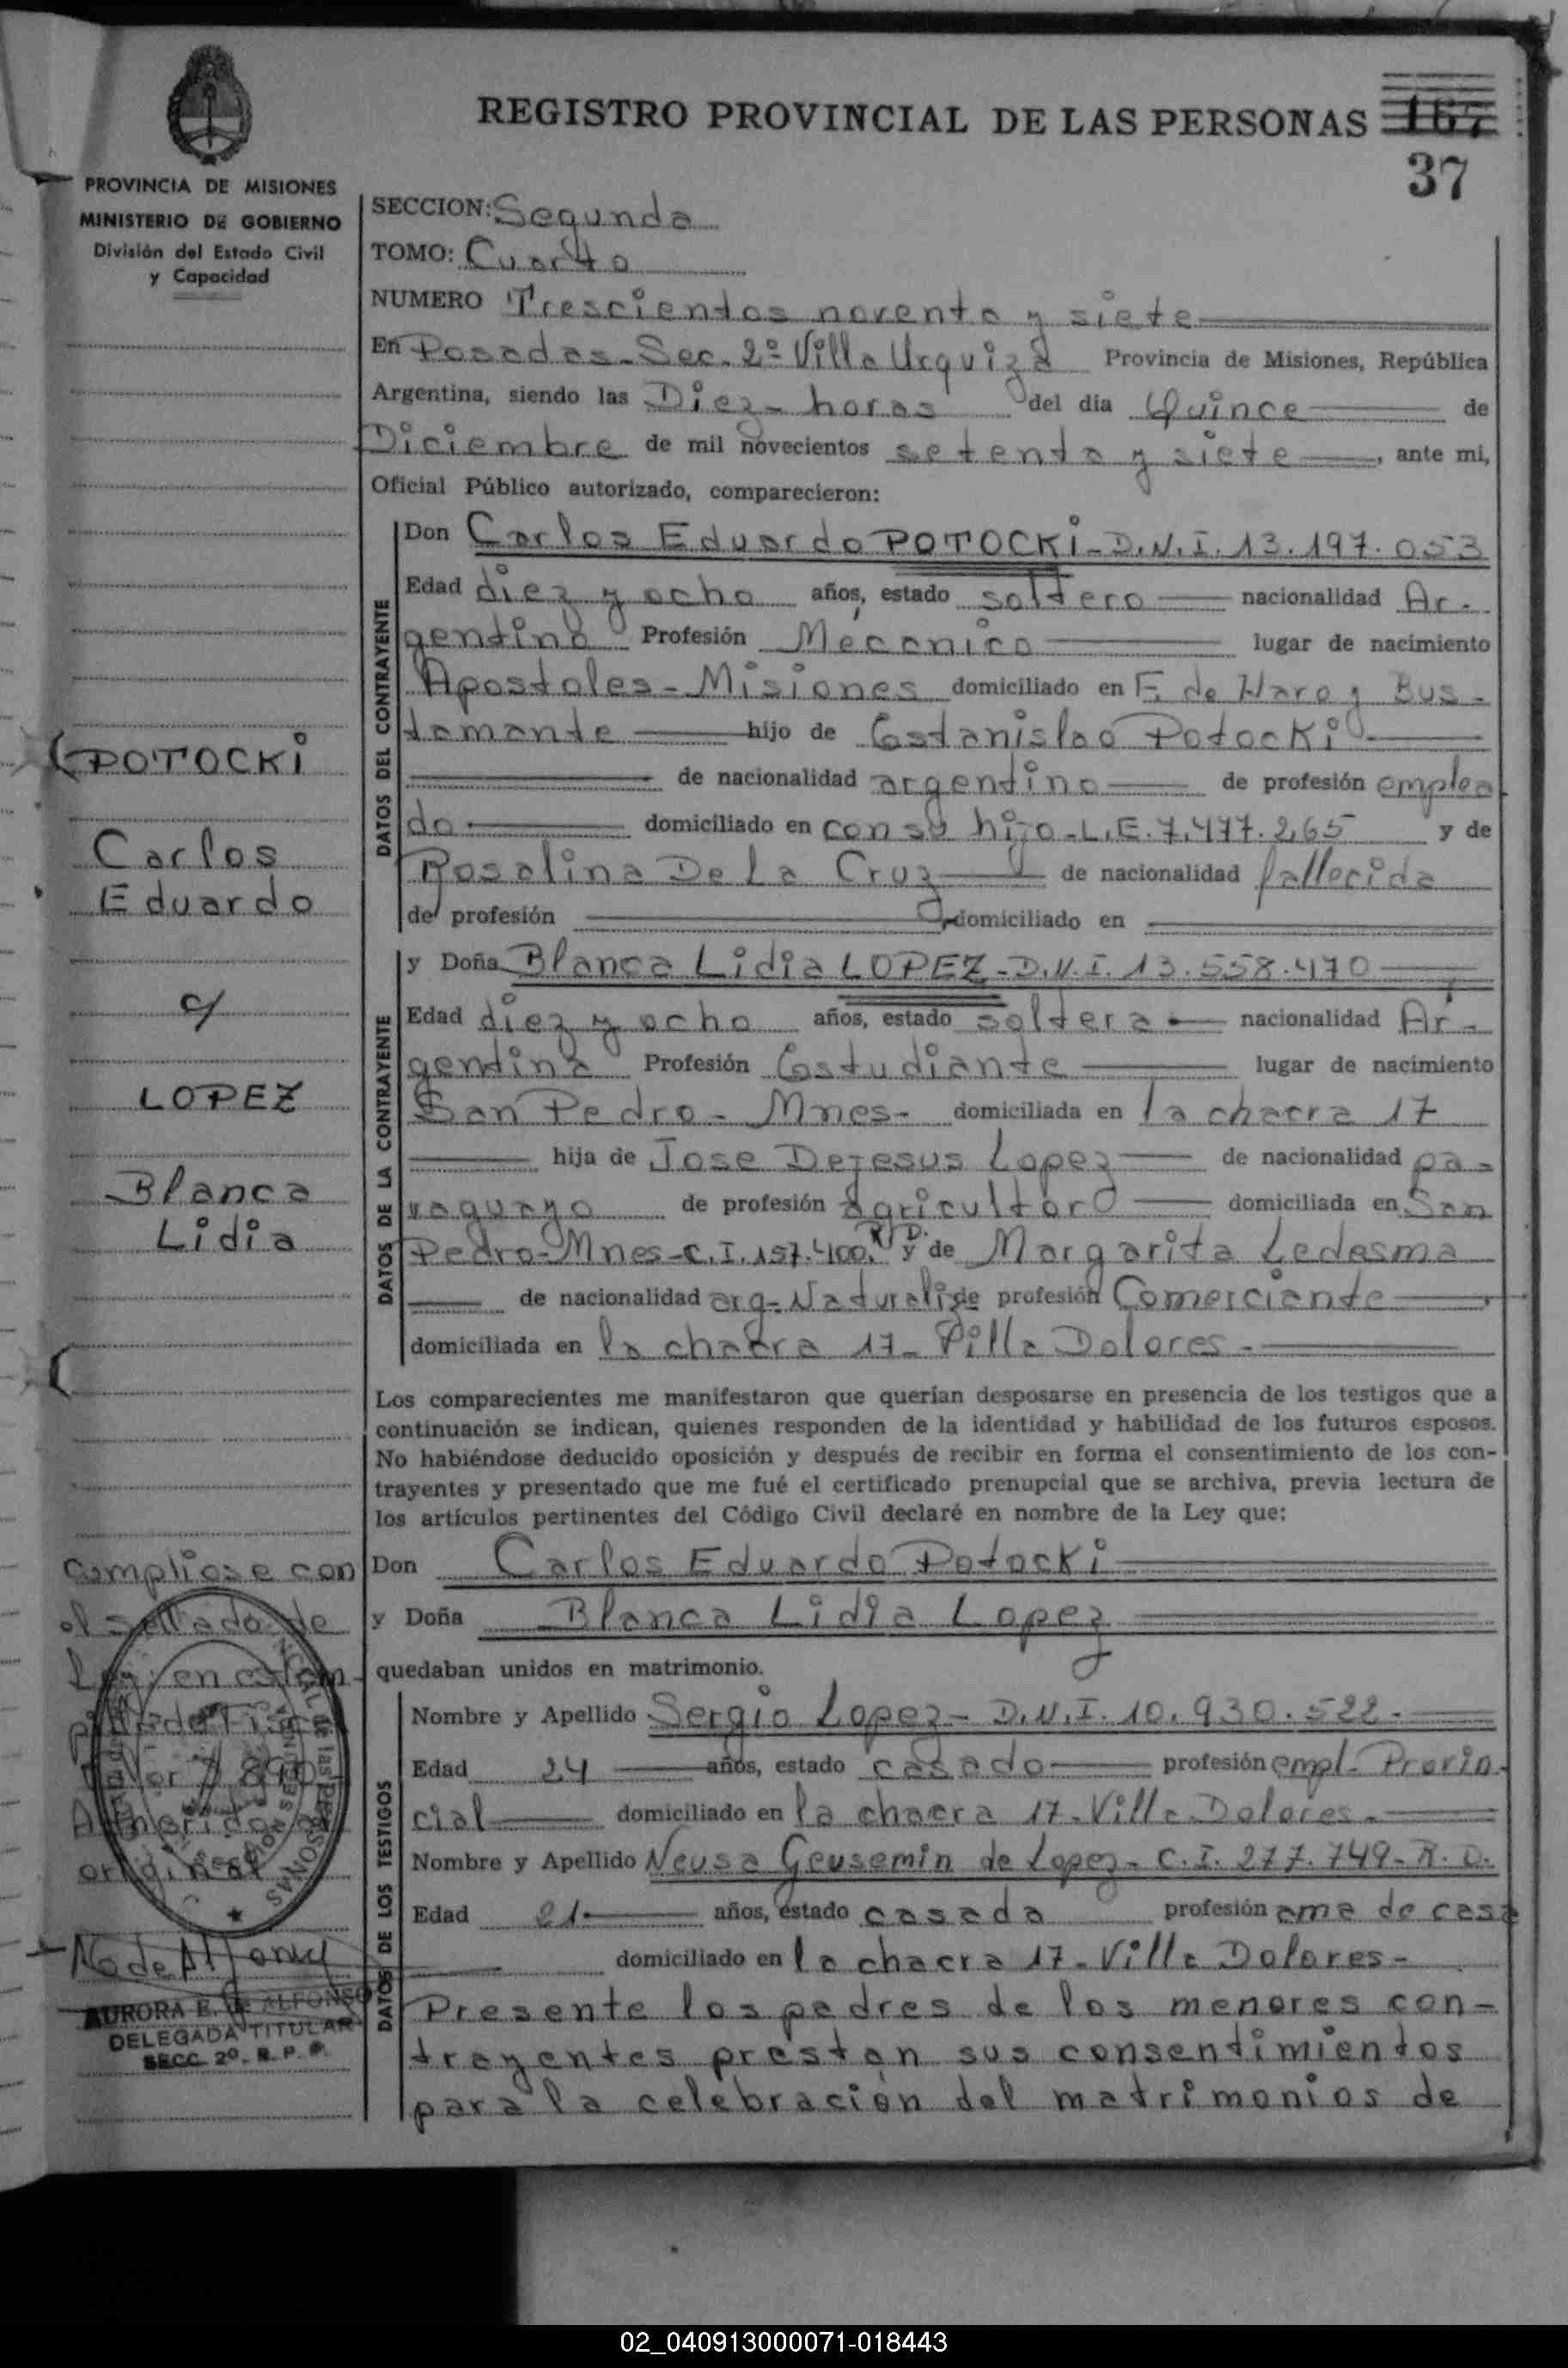 REGISTRO PROVINCIAL DE LAS PERSONAS 167
37
PROVINCIA DE MISIONES
MINISTERIO DE GOBIERNO
División del Estado Civil
y Capacidad
SECCION: Segunda
TOMO: Cuarto
NUMERO Trescientos noventa y siete
En Posadas-Sec. 2º Villa Urquiza Provincia de Misiones, República
Argentina, siendo las Diez- horas del día Quince de
Diciembre de mil novecientos setenta y siete, ante mi,
Oficial Público autorizado, comparecieron:
DATOS DEL CONTRAYENTE
Don Carlos Eduardo POTOCKI-D.N.I. 13.197.053
Edad diez y ocho años, estado soltero nacionalidad Ar-
gentino Profesión Mecanico lugar de nacimiento
Apostoles-Misiones domiciliado en F. de Haro y Bus-
tamante hijo de Estanislao Potocki
de nacionalidad argentino de profesión emplea
do domiciliado en con su hijo-L.E.7.477.265 y de
Rosalina De La Cruz de nacionalidad fallecida
de profesión domiciliado en
DATOS DE LA CONTRAYENTE
y Doña Blanca Lidia LOPEZ-D.N.I. 13.558.470
Edad diez y ocho años, estado soltera nacionalidad Ar-
gentina Profesión Estudiante lugar de nacimiento
San Pedro-Mnes- domiciliada en la chacra 17
hija de Jose Dejesus Lopez de nacionalidad pa-
raguayo de profesión agricultor domiciliada en San
Pedro-Mnes-C.I.157.400. R.D. y de Margarita Ledesma
de nacionalidad arg-Naturaliz de profesión Comerciante
domiciliada en la chacra 17- Villa Dolores-
Los comparecientes me manifestaron que querían desposarse en presencia de los testigos que a
continuación se indican, quienes responden de la identidad y habilidad de los futuros esposos.
No habiéndose deducido oposición y después de recibir en forma el consentimiento de los con-
trayentes y presentado que me fué el certificado prenupcial que se archiva, previa lectura de
los artículos pertinentes del Código Civil declaré en nombre de la Ley que:
Don Carlos Eduardo Potocki
y Doña Blanca Lidia Lopez
quedaban unidos en matrimonio.
DATOS DE LOS TESTIGOS
Nombre y Apellido Sergio Lopez- D.N.I. 10.930.522-
Edad 24 años, estado casado profesión empl- Provin-
cial domiciliado en la chacra 17-Villa Dolores-
Nombre y Apellido Neusa Geusemin de Lopez- C.I. 277.749-R.D.
Edad 21 años, estado casada profesión ama de casa
domiciliado en la chacra 17-Villa Dolores-
Presente los padres de los menores con-
trayentes prestan sus consentimientos
para la celebración del matrimonios de
POTOCKI
Carlos
Eduardo
c/
LOPEZ
Blanca
Lidia
Cumpliose con
el sellado de
Ley en estam
valor $ 890
Adherido al
original
AURORA E. de ALFONSO
DELEGADA TITULAR
SECC. 2º. R. P. P.
02_040913000071-018443